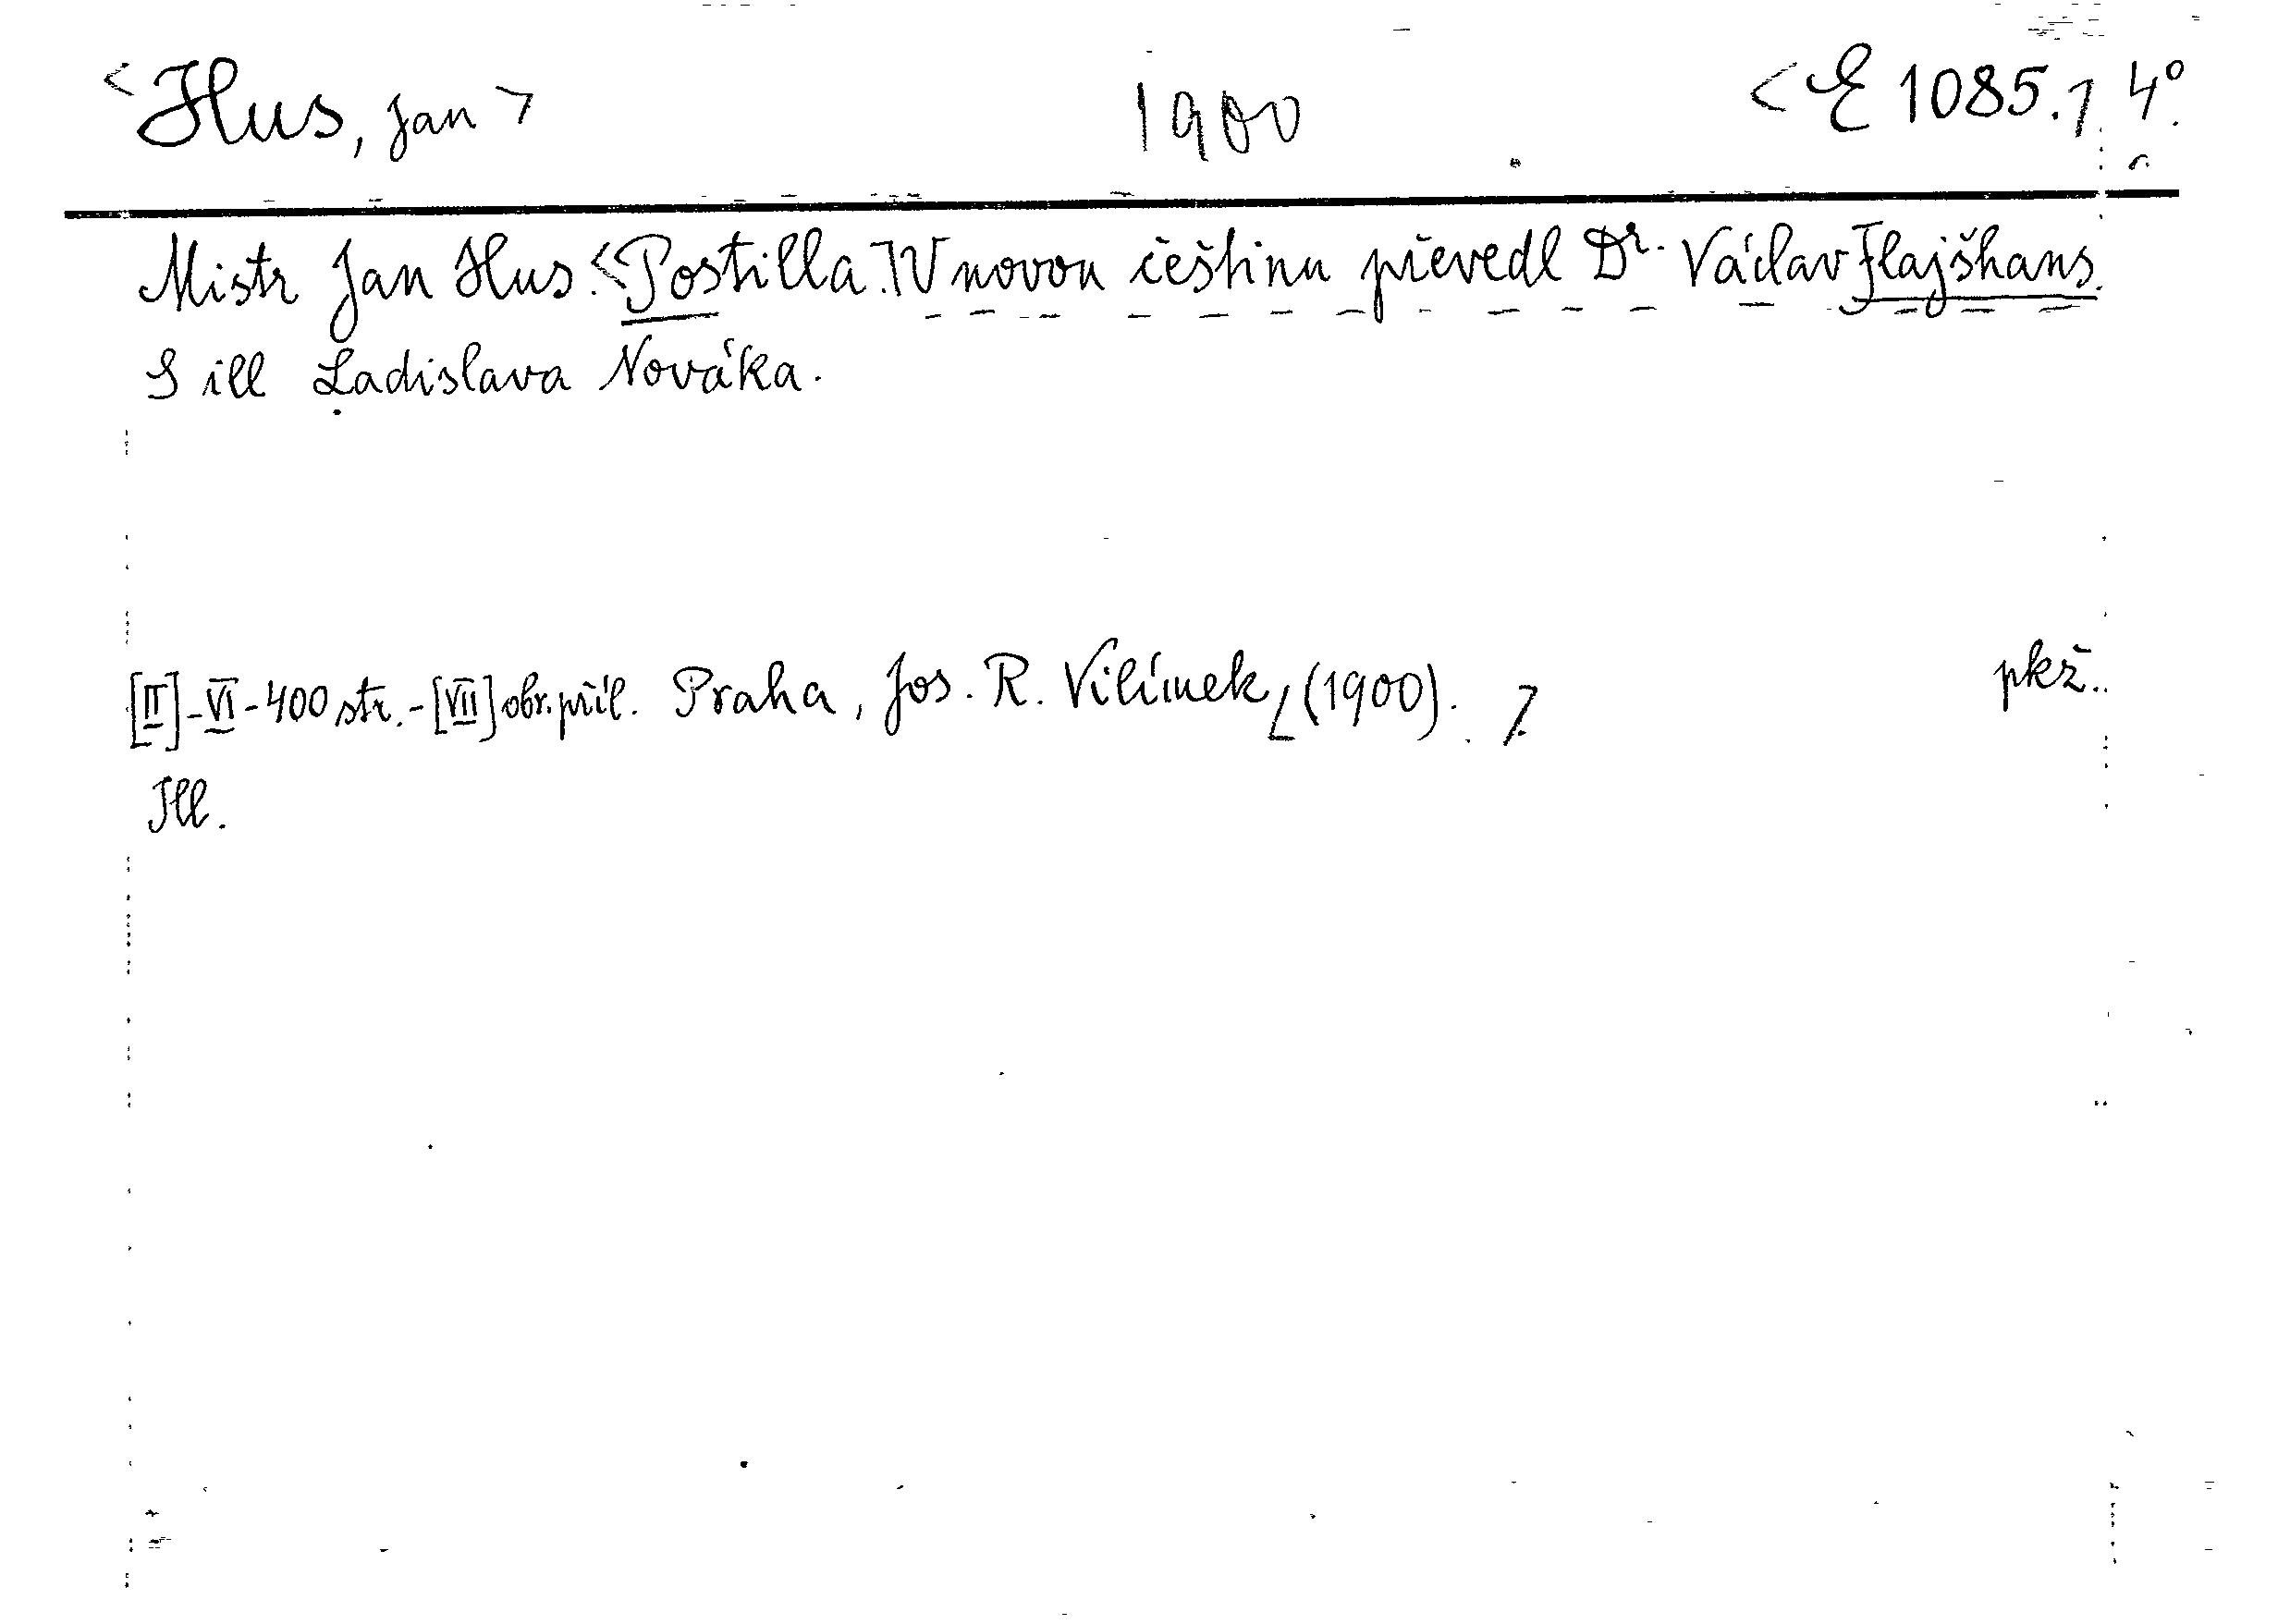 <Hus, Jan> 1900 <E 1085.1 4°.
Mistr Jan Hus.<Postilla.7V novou češtinu převedl Dr. Václav Flajšhans.
S ill Ladislava Nováka.
[II]-VI-400 str.-[VII] obr. příl. Praha, Jos. R. Vilímek, (1900).
pkž.
Ill.